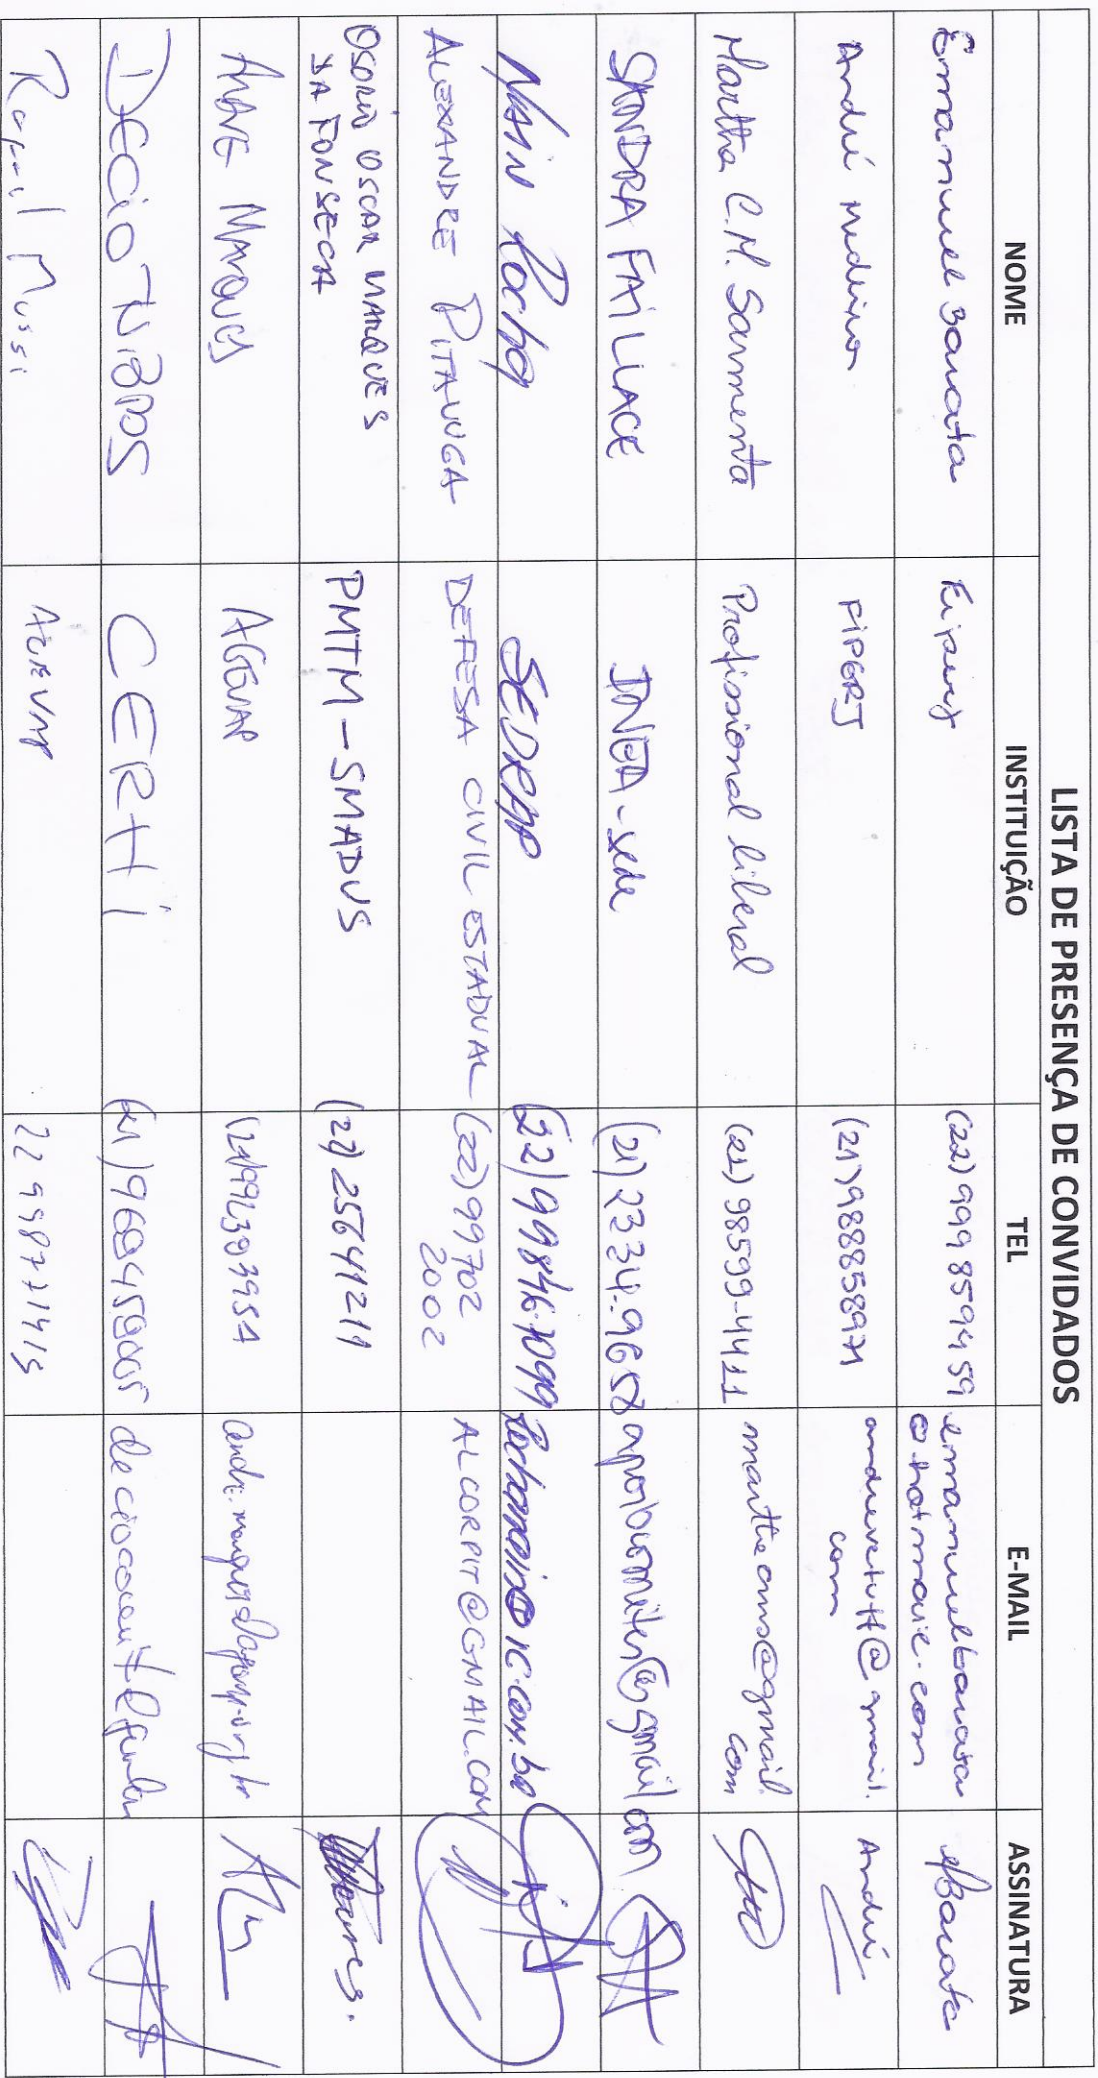 LISTA DE PRESENÇA DE CONVIDADOS
NOME INSTITUIÇÃO TEL E-MAIL ASSINATURA
Emanuel Barata Fiperj (22) 999859459 emanuelbarata
@hotmail.com
André Medeiros FIPERJ (21) 988858971 andrevetuff@gmail.
com André
Martha C.M. Sarmento Profissional liberal (21) 98599-4411 marthacms@gmail.
com
SANDRA FAILLACE INEA-sede (21) 2334-9658 @gmail com
NAIN Rocha SEDRAP (22) 99846-1099
ALEXANDRE PITANGA DEFESA CIVIL ESTADUAL (22) 99702
2002 ALCORPIT@GMAIL.COM
OSORIO OSCAR MARQUES
DA FONSECA PMTM-SMADUS (22) 25641211
MARQUES AGEVAP
DECIO CERHI (21) 968459005
Rafael Mussi AGEVAP 22 998771415